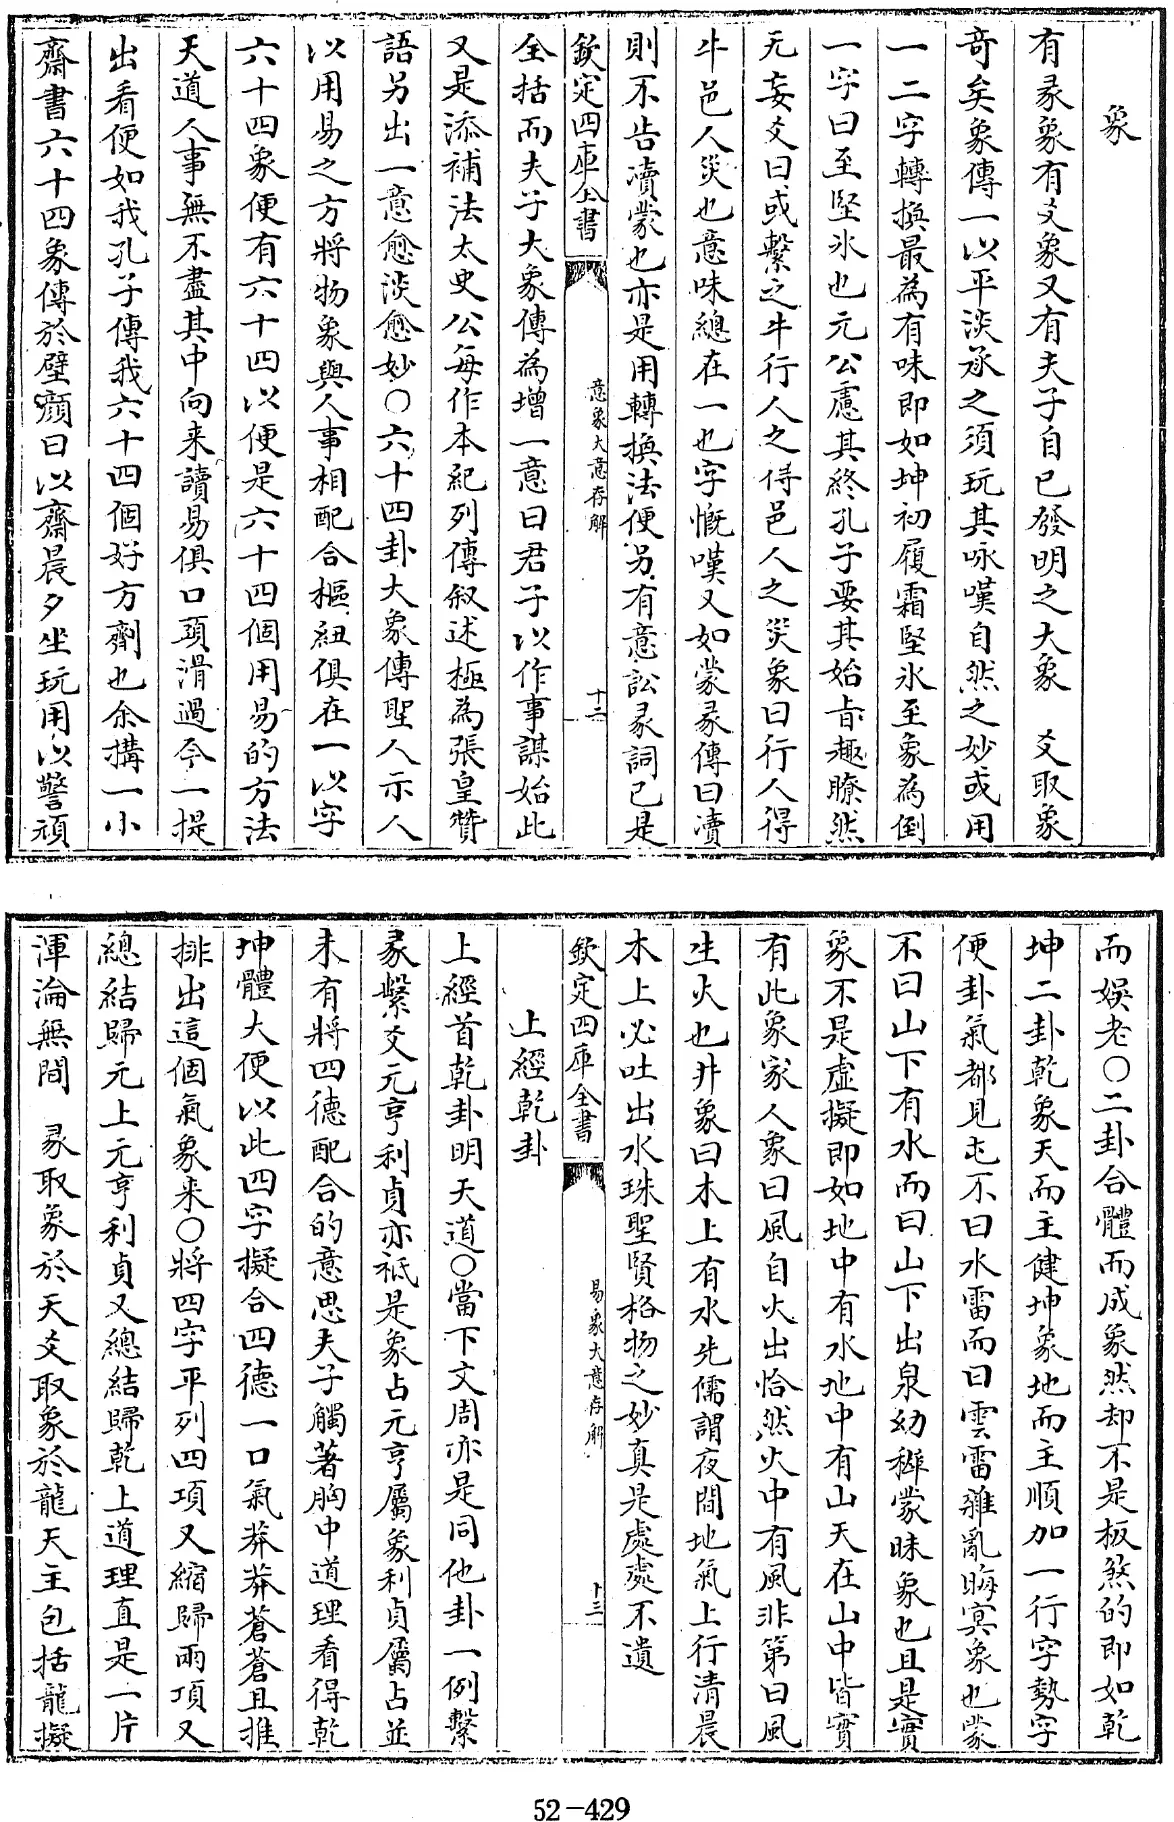 象
有彖象有爻象又有夫子自已發明之大象　爻取象
奇矣象傳一以平淡承之須玩其咏嘆自然之妙或用
一二字轉換最為有味即如坤初履霜堅氷至象為倒
一字曰至堅氷也元公慮其終孔子要其始旨趣瞭然
无妄爻曰或繫之牛行人之得邑人之災象曰行人得
牛邑人災也意味總在一也字慨嘆又如蒙彖傳曰瀆
則不告瀆蒙也亦是用轉換法便另有意訟彖詞已是
欽定四庫全書
易象大意存解
十二
全括而夫子大象傳為增一意曰君子以作事謀始此
又是添補法太史公每作本紀列傳叙述極為張皇贊
語另出一意愈淡愈妙〇六十四卦大象傳聖人示人
以用易之方將物象與人事相配合樞紐俱在一以字
六十四象便有六十四以便是六十四個用易的方法
天道人事無不盡其中向来讀易俱口頭滑過今一提
出看便如我孔子傳我六十四個好方劑也余搆一小
齋書六十四象傳於壁顔曰以齋晨夕坐玩用以警頑
而娛老〇二卦合體而成象然却不是板煞的即如乾
坤二卦乾象天而主健坤象地而主順加一行字勢字
便卦氣都見屯不曰水雷而曰雲雷雜亂晦冥象也蒙
不曰山下有水而曰山下出泉幼穉蒙昧象也且是實
象不是虛擬即如地中有水地中有山天在山中皆實
有此象家人象曰風自火出恰然火中有風非第曰風
生火也井象曰木上有水先儒謂夜間地氣上行清晨
木上必吐出水珠聖賢格物之妙真是處處不遺
欽定四庫全書
易象大意存解
十三
上經乾卦
上經首乾卦明天道〇當下文周亦是同他卦一例繫
彖繫爻元亨利貞亦祗是象占元亨屬象利貞屬占並
未有將四德配合的意思夫子觸著胸中道理看得乾
坤體大便以此四字擬合四德一口氣莽莽蒼蒼且推
排出這個氣象来〇將四字平列四項又縮歸兩項又
總結歸元上元亨利貞又總結歸乾上道理直是一片
渾淪無間　彖取象於天爻取象於龍天主包括龍擬
52-429